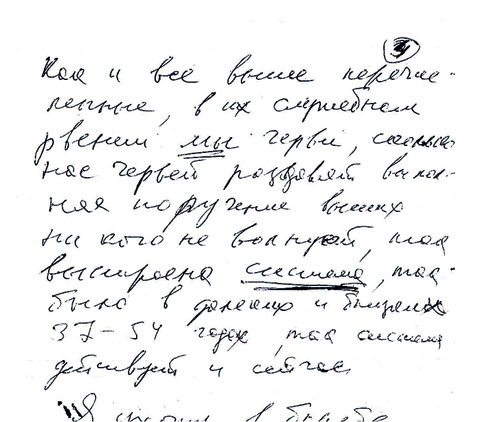 Как и все выше перечис-
ленные, в их служебном
рвении мы черви, сколько
нас червей раздавят выпол-
няя поручение высших
никого не волнует, так
выстроена система, так
было в далеких и близких
37-54 годах, так система
действует и сейчас
Я в борьбе